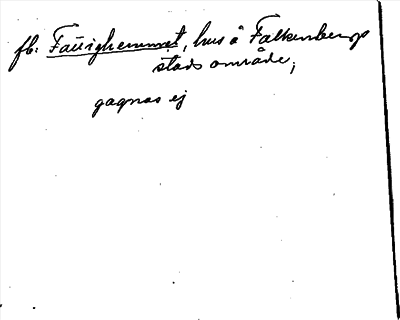 fb: Fattighemmet, hus å Falkenbergs
stads område;
gagnas ej